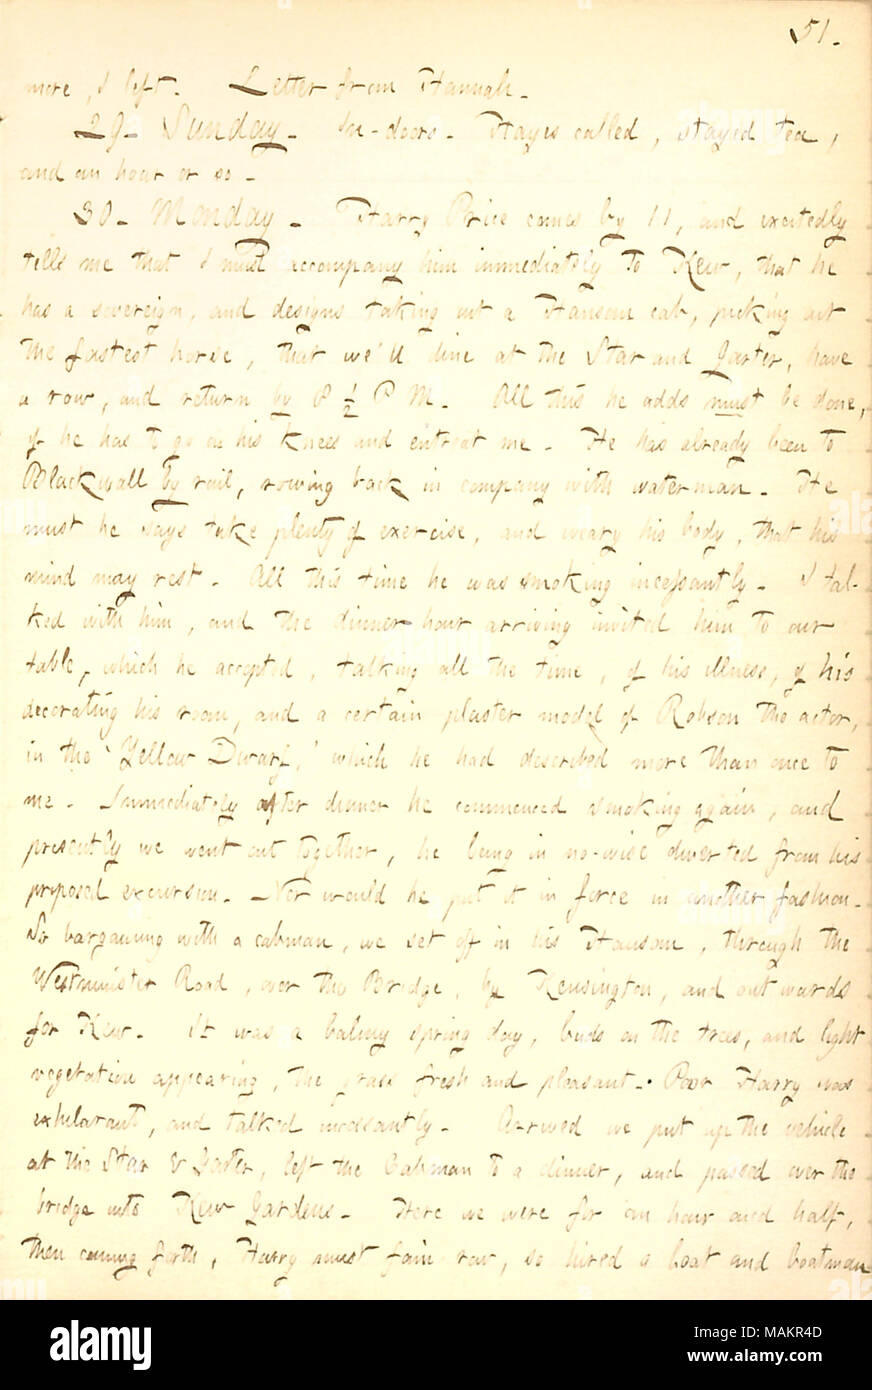 51.
more, I left. Letter from Hannah.
29. Sunday. In-doors. Hayes called, stayed tea,
and an hour or so.
30. Monday. Harry Price comes by 11, and excitedly
tells me that I must accompany him immediately to Kew, that he
has a sovereign, and designs taking out a Hansom cab, picking out
the fastest horse, that we'll dine at the Star and Garter, have
a row, and return by 8 1/2 P M. All this he adds must be done,
if he has to go on his knees and entreat me. He has already been to
Blackwall by rail, rowing back in company with waterman. He
must he says take plenty of exercise, and weary his body, that his
mind may rest. All this time he was smoking incessantly. I tal-
ked with him, and the dinner hour arriving invited him to our
table, which he accepted, talking all the time, of his illness, of his
decorating his room, and a certain plaster model of Robson the actor,
in the 'Yellow Dwarf,' which he had described more than once to
me. Immediately after dinner he commenced smoking again, and
presently we went out together, he being in no-wise diverted from his
proposed excursion. Nor would he put it in force in another fashion.
So bargaining with a cabman, we set off in his Hansom, through the
Westminster Road, over the Bridge, by Kensington, and outwards
for Kew. It was a balmy spring day, buds on the trees, and light
vegetation appearing, the grass fresh and pleasant. Poor Harry was
exhilarant, and talked incessantly. Arrived we put up the vehicle
at the Star & Garter, left the Cabman to a dinner, and passed over the
bridge into Kew Gardens. Here we were for an hour and half,
then coming forth, Harry must fain row, so hired a boat and boatman
alamy
Image ID: MAKR4D
www.alamy.com